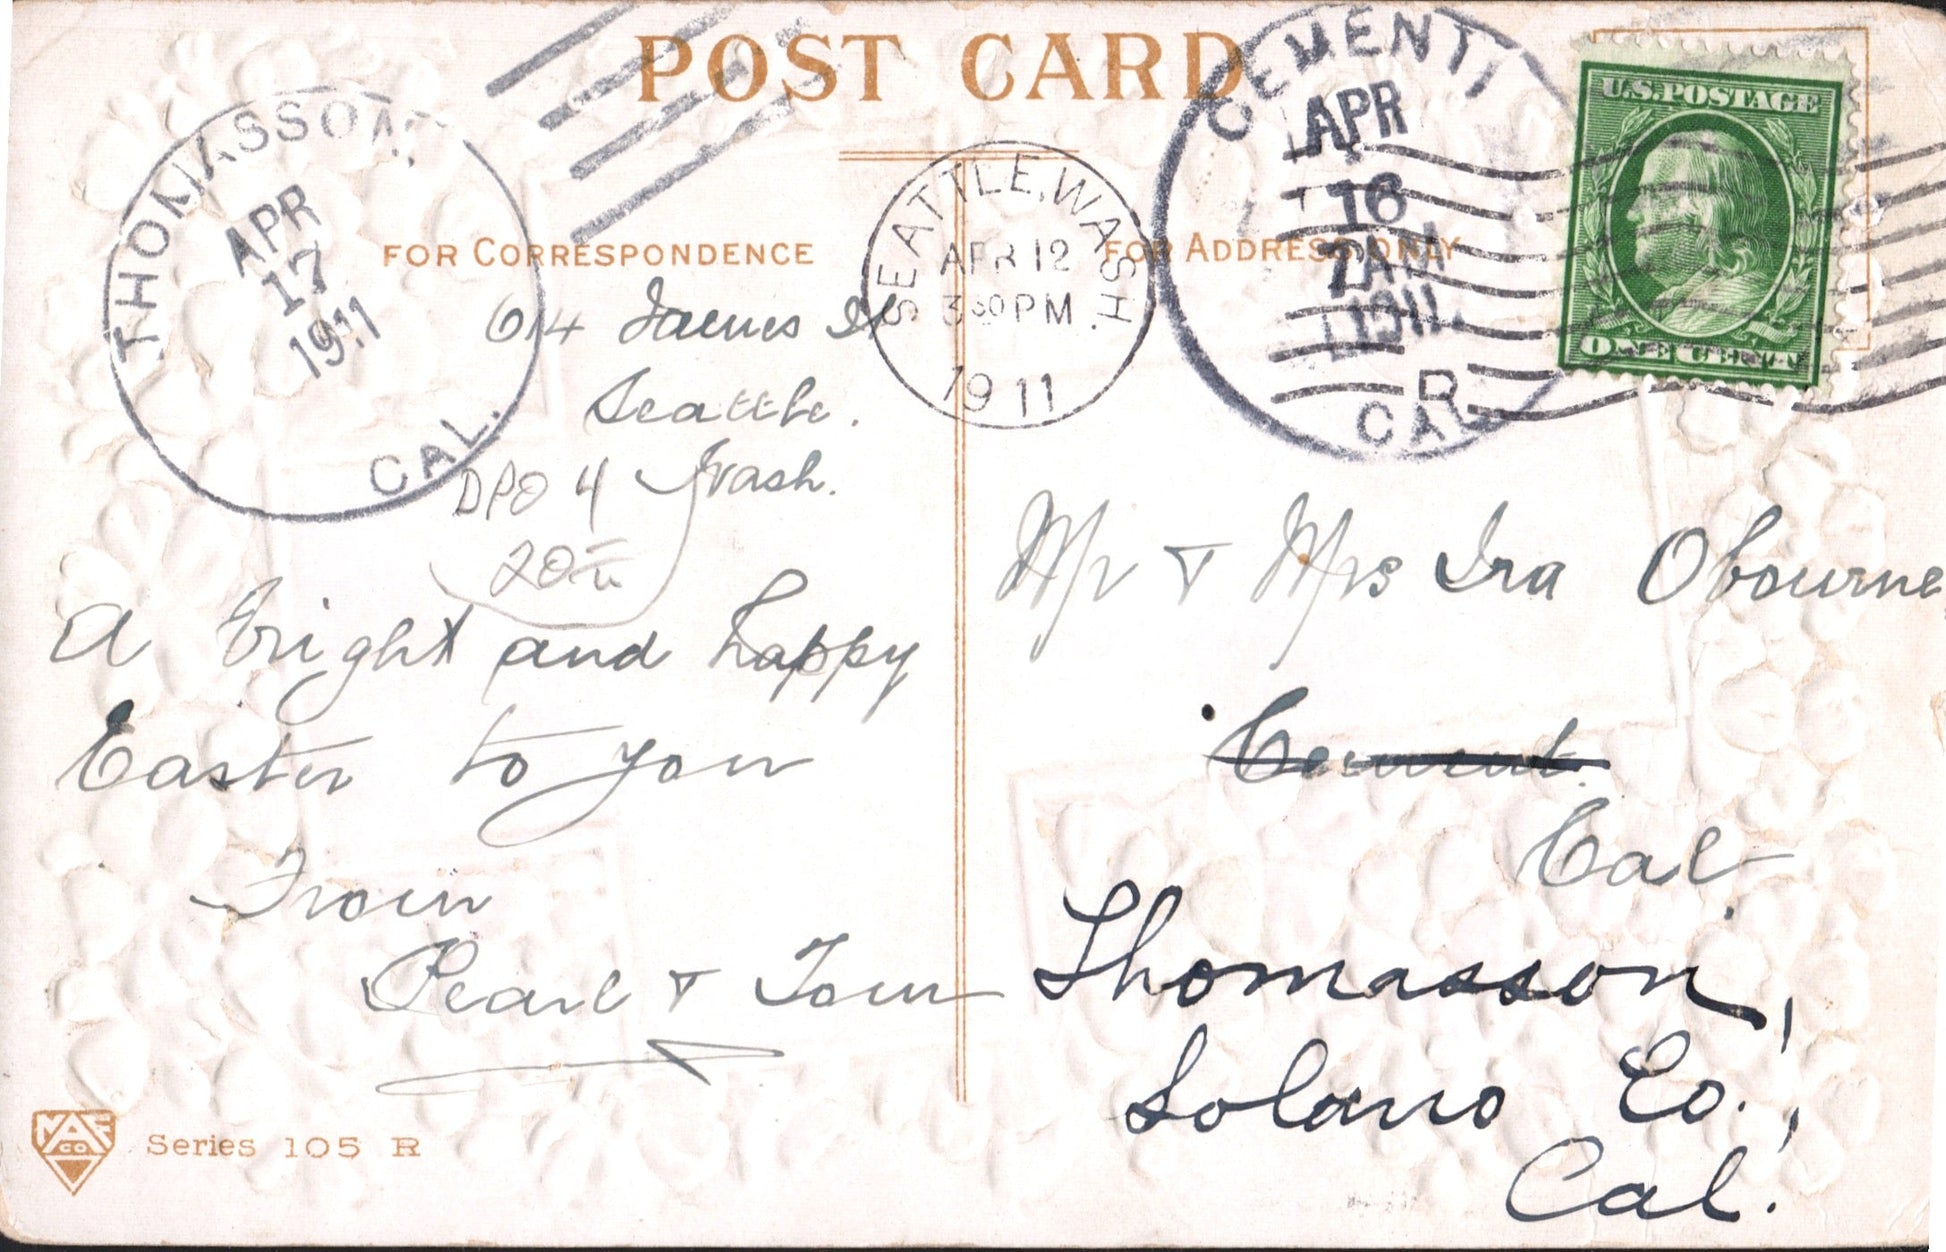 POST CARD
THOMASSON,
APR
17
1911
CAL.
SEATTLE, WASH.
APR 12
3 30 PM
1911
CEMENT
APR
16
1911
CAL
U.S. POSTAGE
ONE CENT
FOR CORRESPONDENCE
FOR ADDRESS ONLY
614 James St
Seattle.
Wash.
DPO 4
A bright and happy
Easter to you
From
Pearl & Tom
Mr & Mrs Ira Obourne
Cement.
Cal
Thomasson,
Solano Co.,
Cal.
Series 105 R